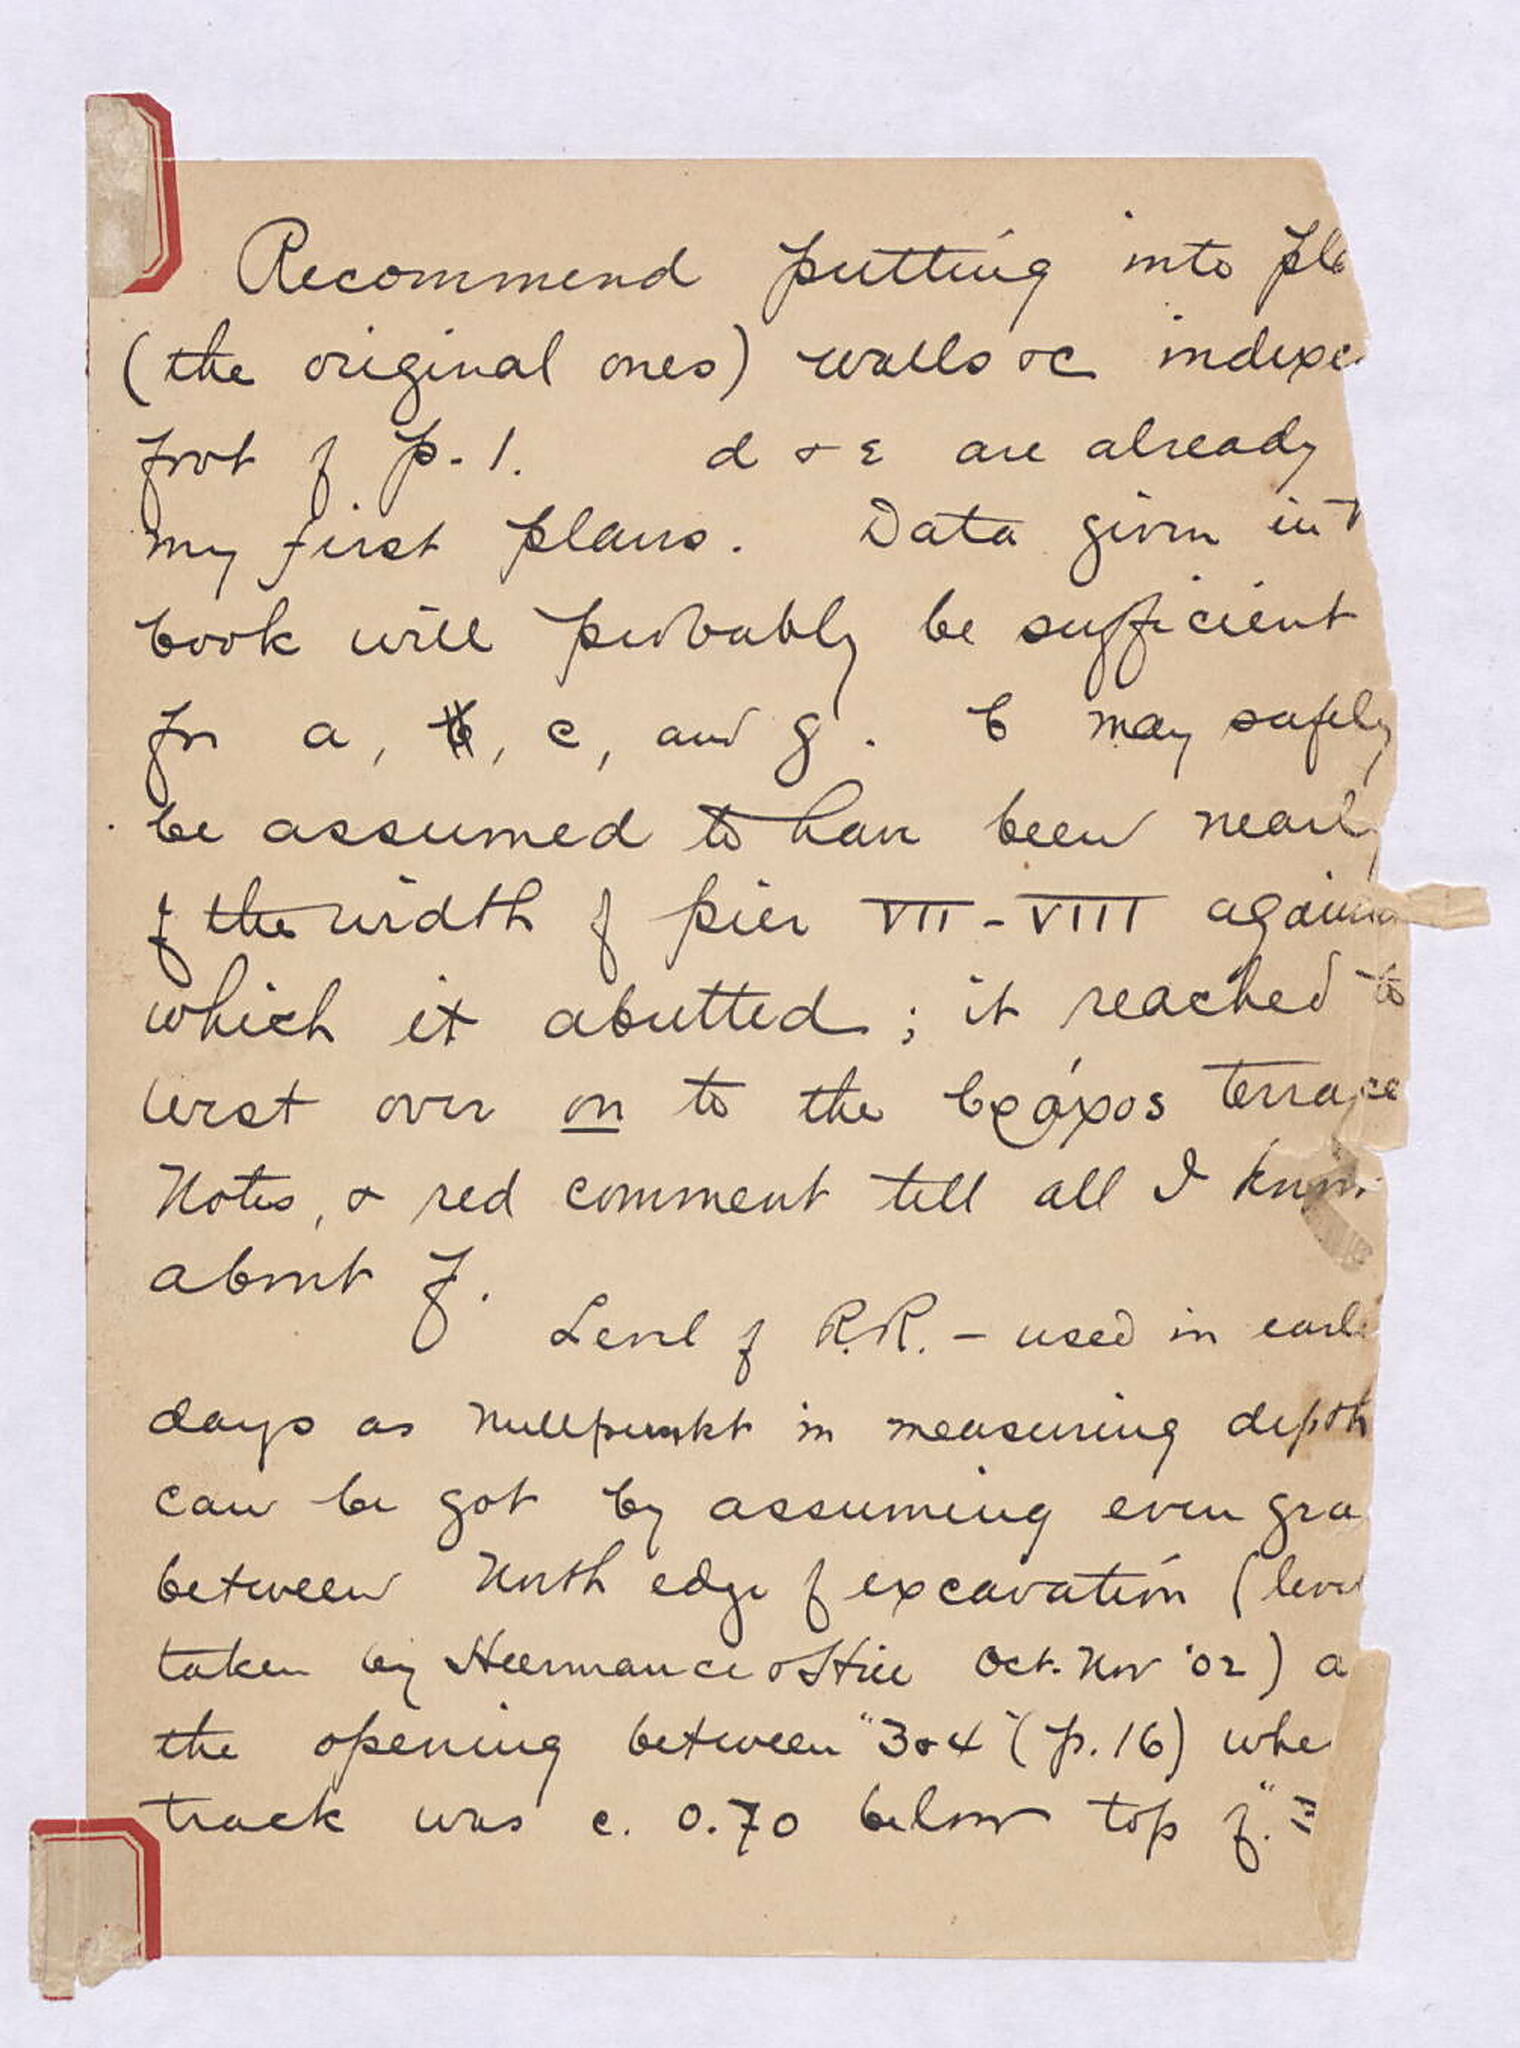 Recommend putting into pla
(the original ones) walls &c indexe
foot of p. 1. d & e are already
my first plans. Data given in t
book will probably be sufficient
for a, b, c, and g. b may safely
be assumed to have been nearly
of the width of pier VII - VIII against
which it abutted; it reached to
west over on to the βράχος terrace
Notes, & red comment tell all I know
about f.
Level of R.R. - used in earl
days as Nullpunkt in measuring depth
can be got by assuming even gra
between North edge of excavation (level
taken by Heermance & Hill Oct. Nov '02) a
the opening between "3 & 4" (p. 16) whe
track was c. 0.70 below top of "